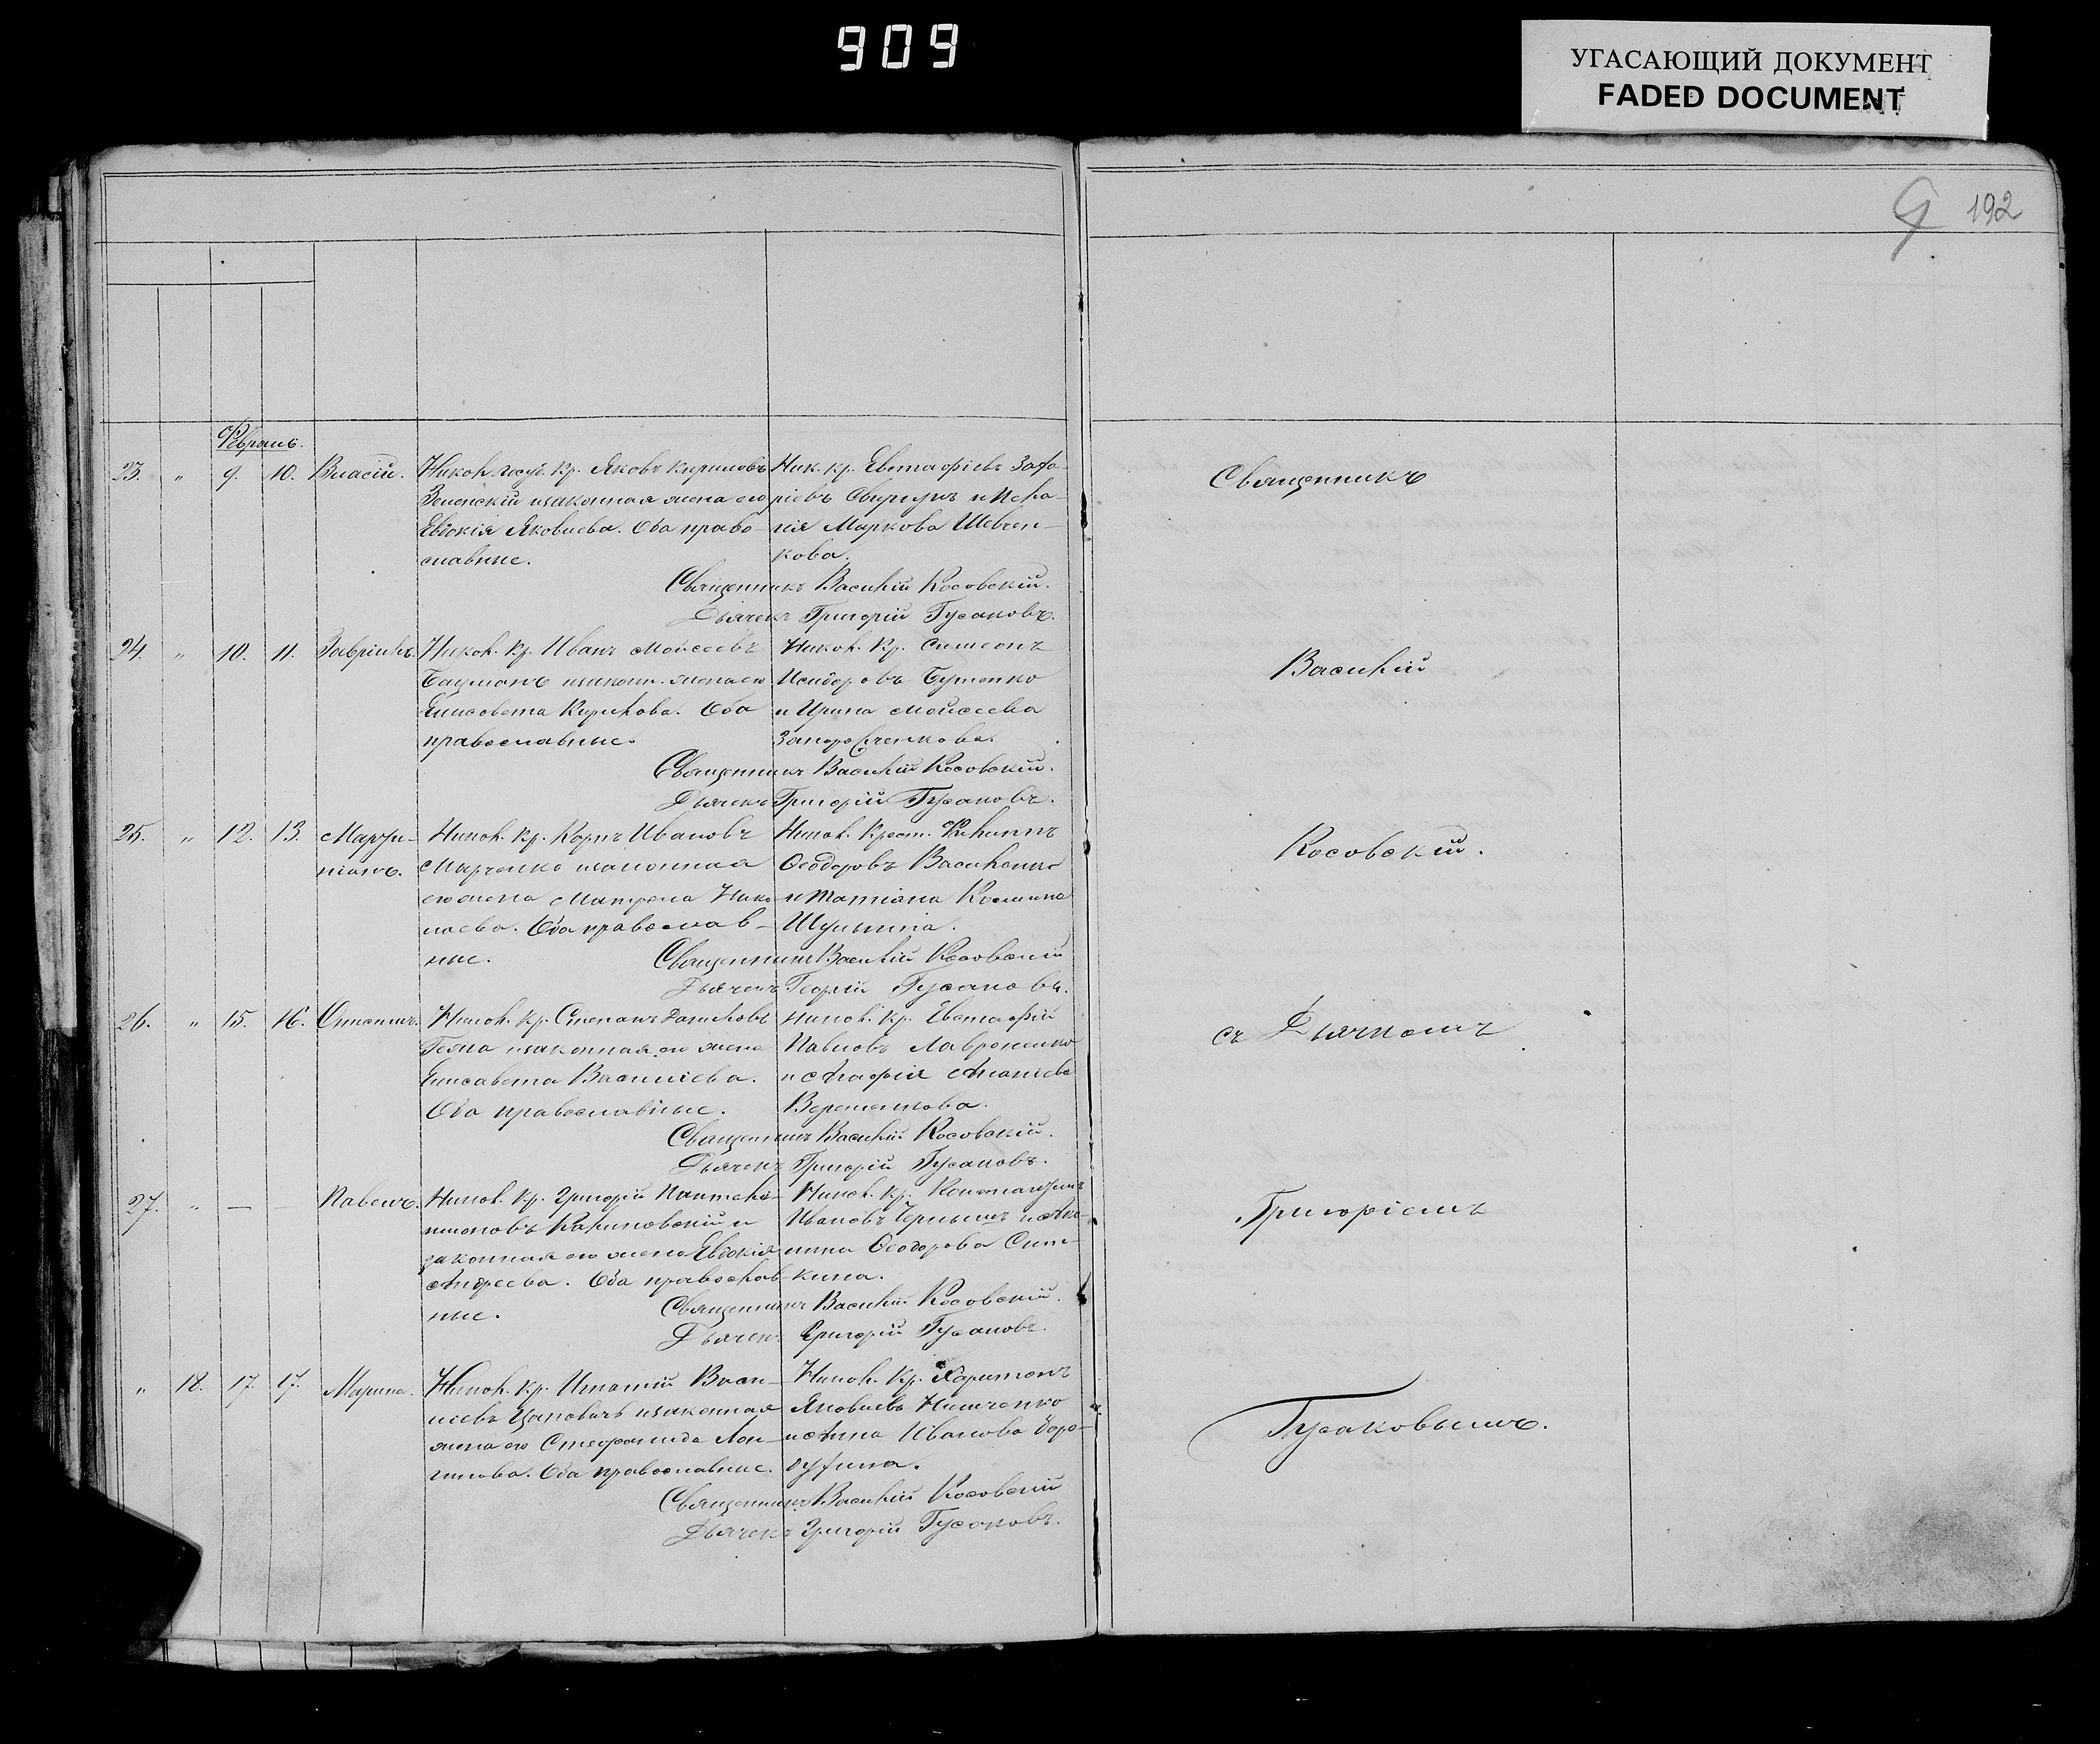 909
УГАСАЮЩИЙ ДОКУМЕНТ
FADED DOCUMENT
192
Февраль.
23. " 9. 10. Власій. Никол. госуд. кр. Яковъ Кириловъ
Зеленскій и законная жена его
Евдокія Яковлева. Оба право-
славные.
Ник. кр. Евстафіевъ Заха-
ріевъ и Пела-
гія Маркова Шевчен-
кова.
Священникъ Василій Косовскій.
Дьячекъ Григорій Гусаковъ.
24. " 10. 11. Гавріилъ. Никол. кр. Иванъ Моисеевъ
Бацманъ и законн. жена его
Елисавета Кирилова. Оба
православные.
Никол. кр. Симеонъ
Исидоровъ Бутенко
и Ирина Моисеева
Священникъ Василій Косовскій.
Дьячекъ Григорій Гусаковъ.
25. " 12. 13. Марти-
ніанъ.
Никол. кр. Карпъ Ивановъ
Марченко и законная
его жена Матрона Нико-
лаева. Оба православ-
ные.
Никол. Крест. Филиппъ
Феодоровъ Василенко
и Татіана Космина
Шульгина.
Священникъ Василій Косовскій
Дьячекъ Георгій Гусаковъ.
26. " 15. 16. Онисимъ. Никол. кр. Степанъ Даниловъ
и законная его жена
Елисавета Василіева.
Оба православные.
Никол. кр. Евстафій
Павловъ Лавроненко
и Агафія Ананіева
Веременкова.
Священникъ Василій Косовскій.
Дьячекъ Григорій Гусаковъ.
27. " — — Павелъ. Никол. кр. Григорій Пантеле-
имоновъ Калиновскій и
законная его жена Евдокія
Андреева. Оба православ-
ные.
Никол. кр. Константинъ
Ивановъ Чернышъ и Аки-
лина Феодорова Сит-
кина.
Священникъ Василій Косовскій.
Дьячекъ Григорій Гусаковъ.
" 18. 17. 17. Марина. Никол. кр. Игнатій Влас-
іевъ и законная
жена его Стефанида Лон-
гинова. Оба православные.
Никол. кр. Харитонъ
Яковлевъ Нимченко
и Анна Иванова Боро-
духина.
Священникъ Василій Косовскій
Дьячекъ Григорій Гусаковъ.
Священникъ
Василій
Косовскій.
съ Дьячкомъ
Григоріемъ
Гусаковымъ.